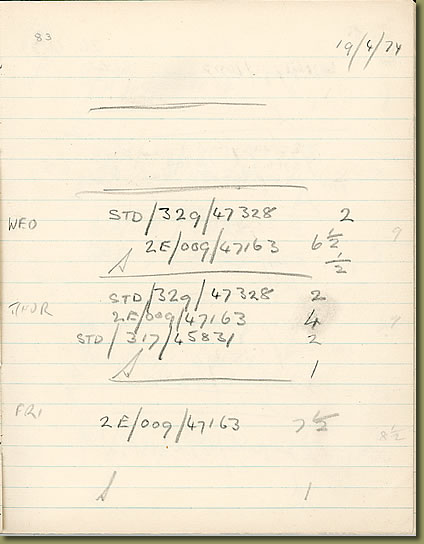 83
19/4/74
WED STD/329/47328 2
2E/009/47163 6 1/2 9
S 1/2
THUR STD/329/47328 2
2E/009/47163 4 9
STD/317/45831 2
S 1
FRI 2E/009/47163 7 1/2 8 1/2
S 1